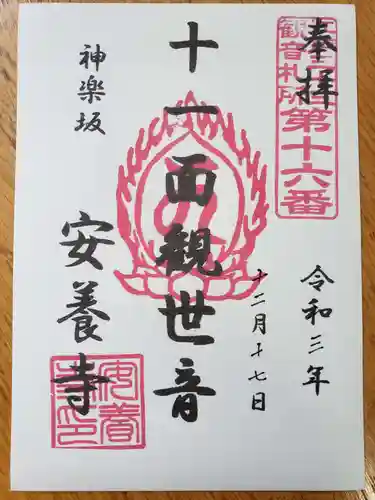 奉拝
観音札所
第十六番
令和三年
十二月十七日
十一面観世音
神楽坂
安養寺
安養寺印